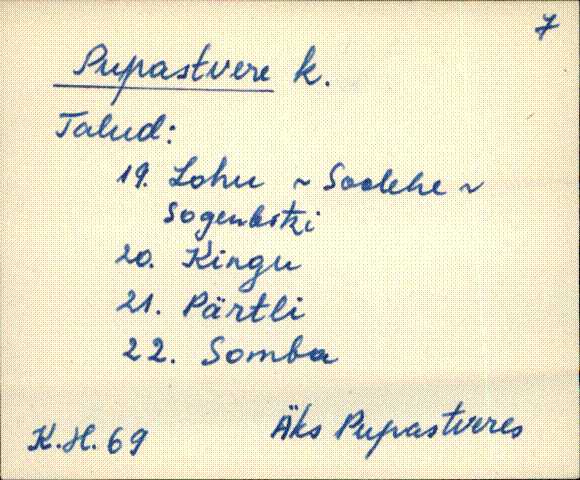 7
Pupastvere k.
Talud:
19. Lohu ~ Soolehe ~
20. Kingu
21. Pärtli
22. Somba
K.H. 69 Äks Pupastveres